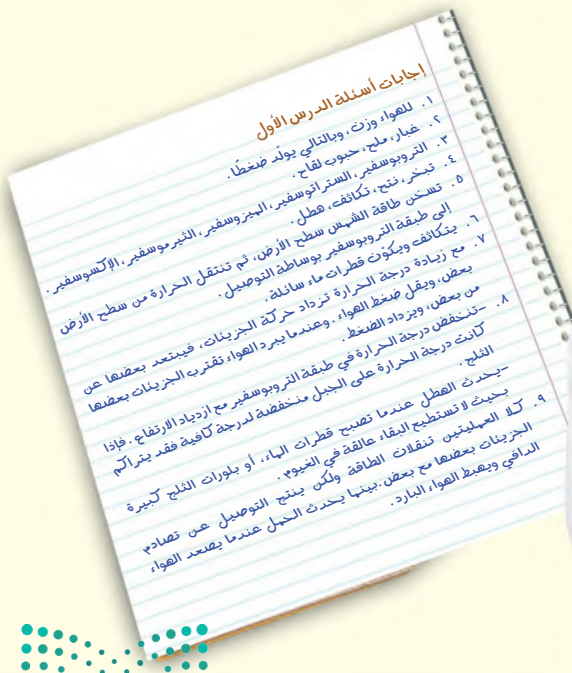 إجابات أسئلة الدرس الأول
١. للهواء وزن، وبالتالي يولّد ضغطًا.
٢. غبار، ملح، حبوب لقاح.
٣. التروبوسفير، الستراتوسفير، الميزوسفير، الثيرموسفير، الإكسوسفير.
٤. تبخر، نتح، تكاثف، هطل.
٥. تسخن طاقة الشمس سطح الأرض، ثم تنتقل الحرارة من سطح الأرض
إلى طبقة التروبوسفير بوساطة التوصيل.
٦. يتكاثف ويكوّن قطرات ماء سائلة.
٧. مع زيادة درجة الحرارة تزداد حركة الجزيئات، فيبتعد بعضها عن
بعض، ويقل ضغط الهواء. وعندما يبرد الهواء تقترب الجزيئات بعضها
من بعض، ويزداد الضغط.
٨. -تنخفض درجة الحرارة في طبقة التروبوسفير مع ازدياد الارتفاع. فإذا
كانت درجة الحرارة على الجبل منخفضة لدرجة كافية فقد يتراكم
الثلج.
-يحدث الهطل عندما تصبح قطرات الماء، أو بلورات الثلج كبيرة
بحيث لا تستطيع البقاء عالقة في الغيوم.
٩. كلا العمليتين تنقلات الطاقة ولكن ينتج التوصيل عن تصادم
الجزيئات بعضها مع بعض. بينما يحدث الحمل عندما يصعد الهواء
الدافي ويهبط الهواء البارد.